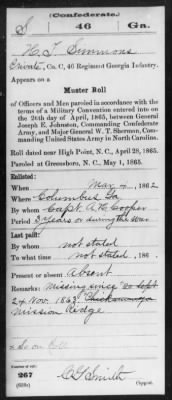 (Confederate.)
S 46 Ga.
H. T. Simmons
Private, Co. C, 46 Regiment Georgia Infantry.
Appears on a
Muster Roll
of Officers and Men paroled in accordance with the
terms of a Military Convention entered into on
the 26th day of April, 1865, between General
Joseph E. Johnston, Commanding Confederate
Army, and Major General W. T. Sherman, Com-
manding United States Army in North Carolina.
Roll dated near High Point, N. C., April 28, 1865.
Paroled at Greensboro, N. C., May 1, 1865.
Enlisted:
When Mar 4, 1862
Where Columbus Ga
By whom Capt. A. W. Cooper
Period 3 years or during the war
Last paid:
By whom not stated
To what time not stated, 186 .
Present or absent Absent
Remarks: Missing since
24 Nov. 1863, Chickamauga
Mission Ridge
x So on Roll
Number of roll:
267
C G Smith
Copyist.